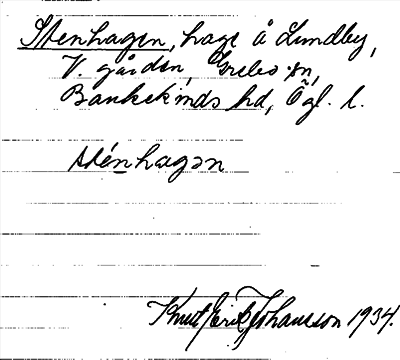 Stenhagen, hage å Lundby,
V. gården, Grebo sn,
Bankekinds hd, Ögl. l.
sténhagən
Knut Erik Johansson 1934.